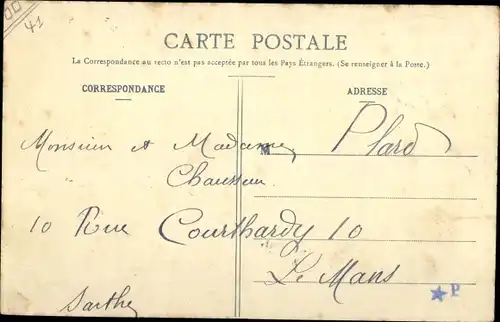 41
CARTE POSTALE
La Correspondance au recto n'est pas acceptée par tous les Pays Étrangers. (Se renseigner à la Poste.)
CORRESPONDANCE
ADRESSE
Monsieur et Madame M Plard
Chausseur
10 Rue Courthardy 10
Le Mans
Sarthe
P